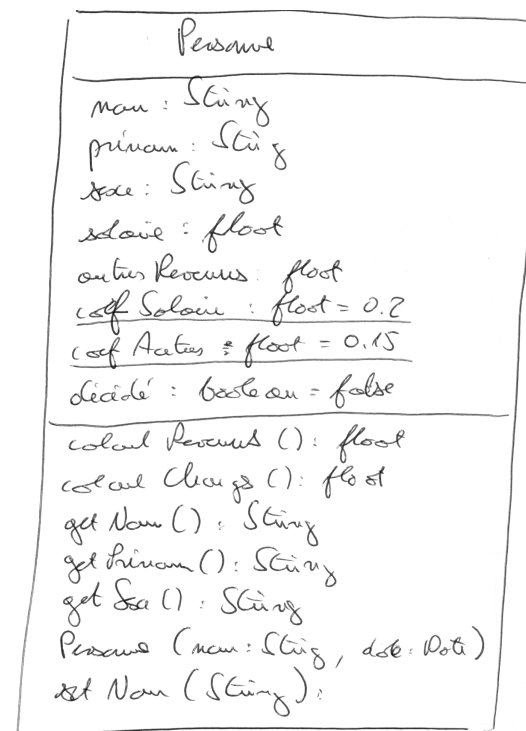 Personne
nom : String
prénom : String
sexe : String
salaire : float
autres Revenus : float
coef Salaire : float = 0.2
coef Autres : float = 0.15
décédé : boolean = false
calcul Revenus () : float
calcul Charges () : float
get Nom () : String
get Prénom () : String
get Sexe () : String
Personne (nom : String, date : Date)
set Nom (String) :